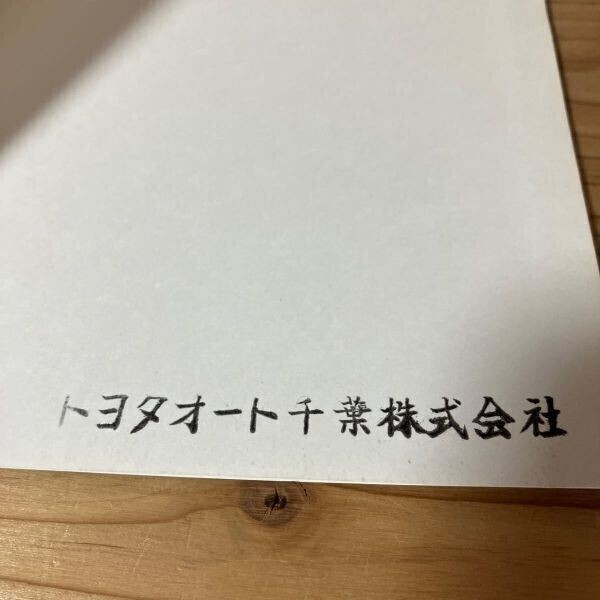 トヨタオート千葉株式会社